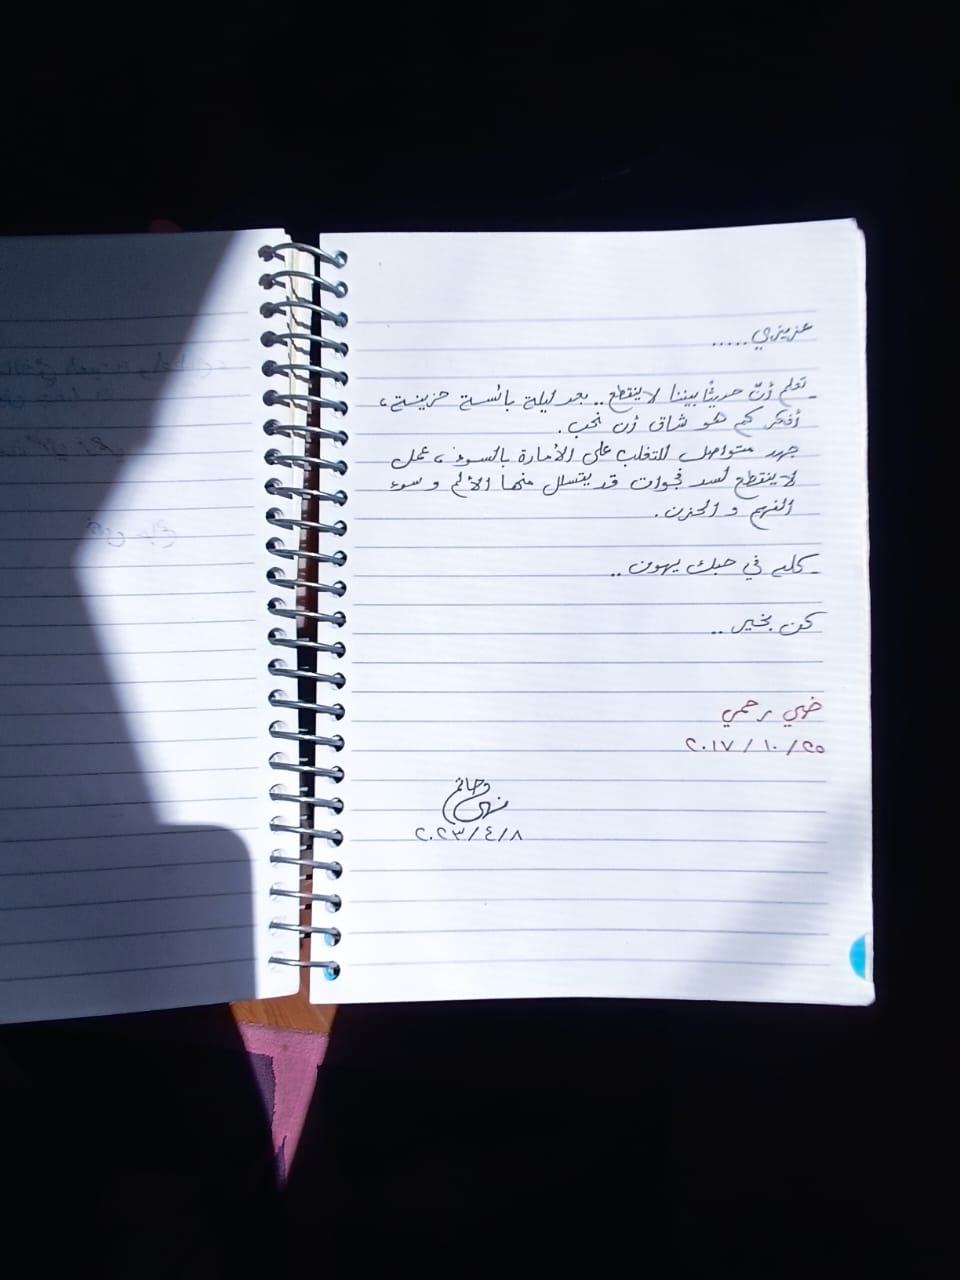 عزيزي.....
- تعلم أنّ حديثًا بيننا لا ينقطع .. بعد ليلة بائسة حزينة،
أفكر كم هو شاق أن نحب.
جهد متواصل للتغلب على الأمارة بالسوء، عمل
لا ينقطع لسد فجوات قد يتسلل منها الألم و سوء
الفهم و الحزن.
- كله في حبك يهون ..
كن بخير ..
ضي رحمي
٢٠١٧ / ١٠ / ٢٥
نهى حاتم
٢٠٢٣ / ٤ / ٨